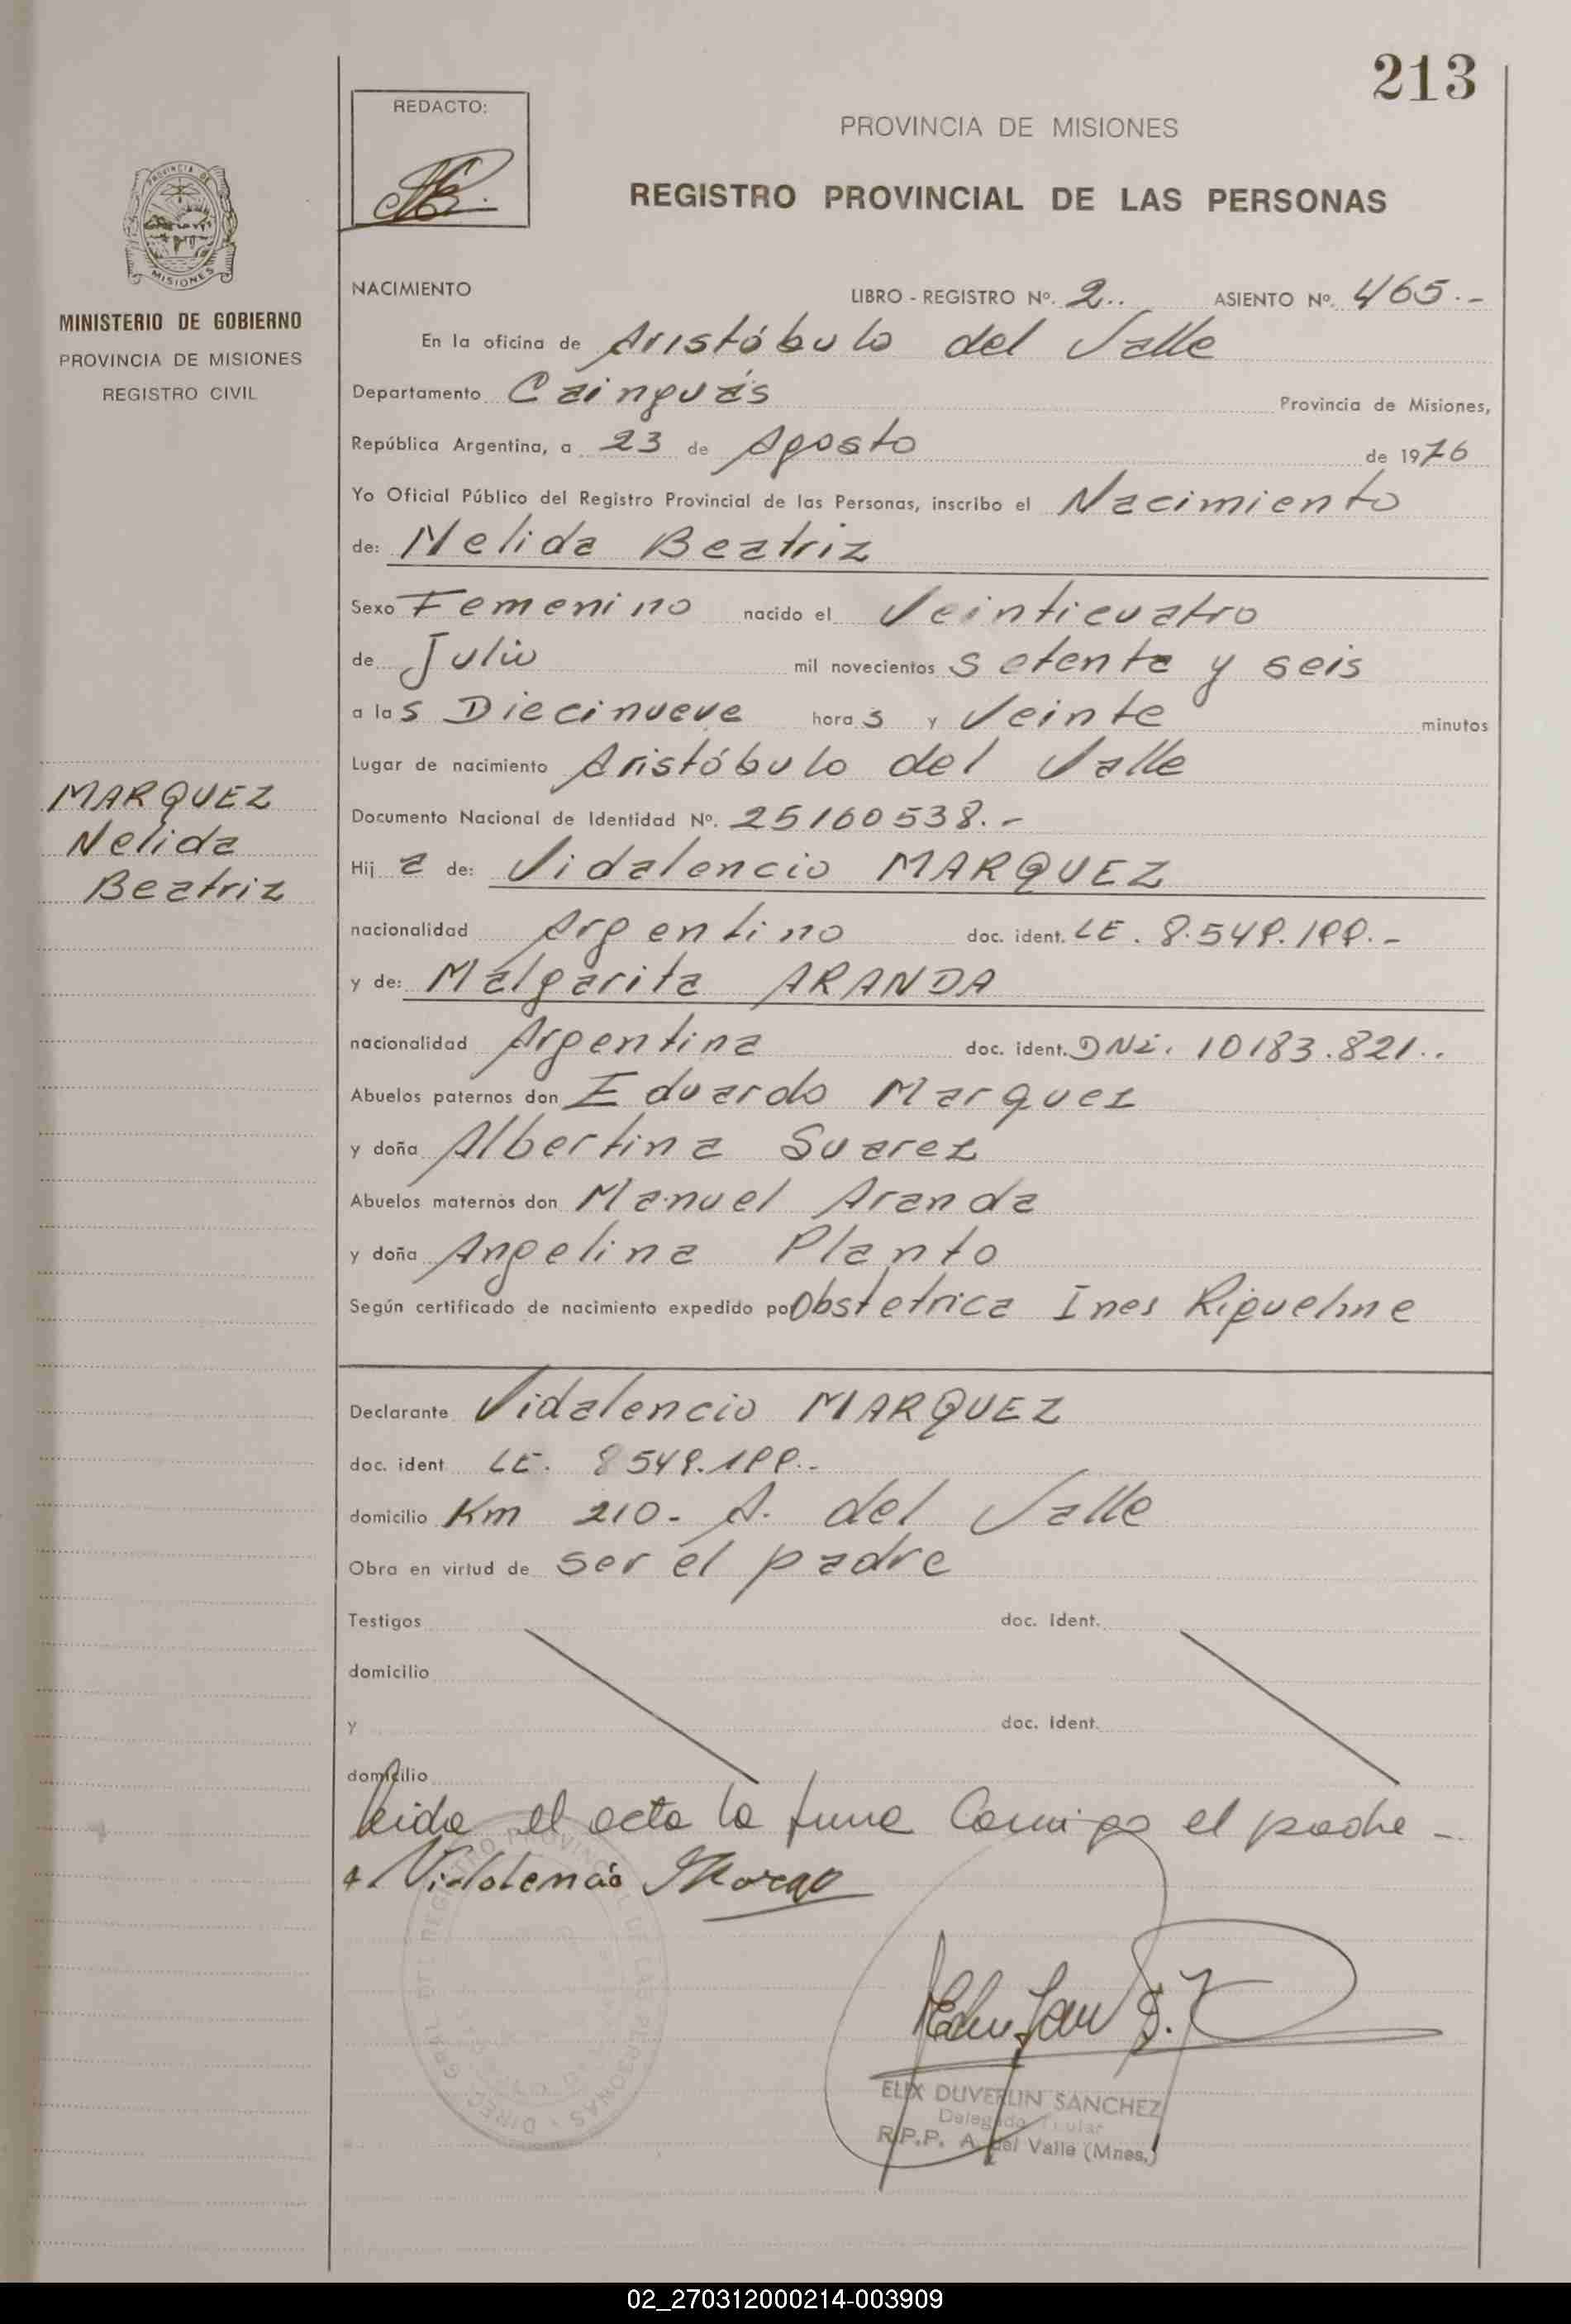 213
REDACTO:
PROVINCIA DE MISIONES
REGISTRO PROVINCIAL DE LAS PERSONAS
PROVINCIA DE
MISIONES
MINISTERIO DE GOBIERNO
PROVINCIA DE MISIONES
REGISTRO CIVIL
NACIMIENTO LIBRO - REGISTRO Nº. 2.. ASIENTO Nº. 465.-
En la oficina de Aristóbulo del Valle
Departamento Cainguás Provincia de Misiones,
República Argentina, a 23 de Agosto de 1976
Yo Oficial Público del Registro Provincial de las Personas, inscribo el Nacimiento
de: Nelida Beatriz
Sexo Femenino nacido el Veinticuatro
de Julio mil novecientos setenta y seis
a las Diecinueve horas y Veinte minutos
Lugar de nacimiento Aristóbulo del Valle
Documento Nacional de Identidad Nº. 25160538.-
MARQUEZ
Nelida
Beatriz
Hija de: Vidalencio MARQUEZ
nacionalidad Argentino doc. ident. LE. 8.549.199.-
y de: Malgarita ARANDA
nacionalidad Argentina doc. ident. DNi. 10183.821..
Abuelos paternos don Eduardo Marquez
y doña Albertina Suarez
Abuelos maternos don Manuel Aranda
y doña Angelina Planto
Según certificado de nacimiento expedido por Obstetrica Ines Riquelme
Declarante Vidalencio MARQUEZ
doc. ident LE. 8549.199.-
domicilio Km 210- A. del Valle
Obra en virtud de ser el padre
Testigos doc. ident.
domicilio
y doc. ident.
domicilio
leida el acta la firma Conmigo el padre -
ELIX DUVERLIN SANCHEZ
Delegado Titular
R.P.P. A. del Valle (Mnes.)
02_270312000214-003909